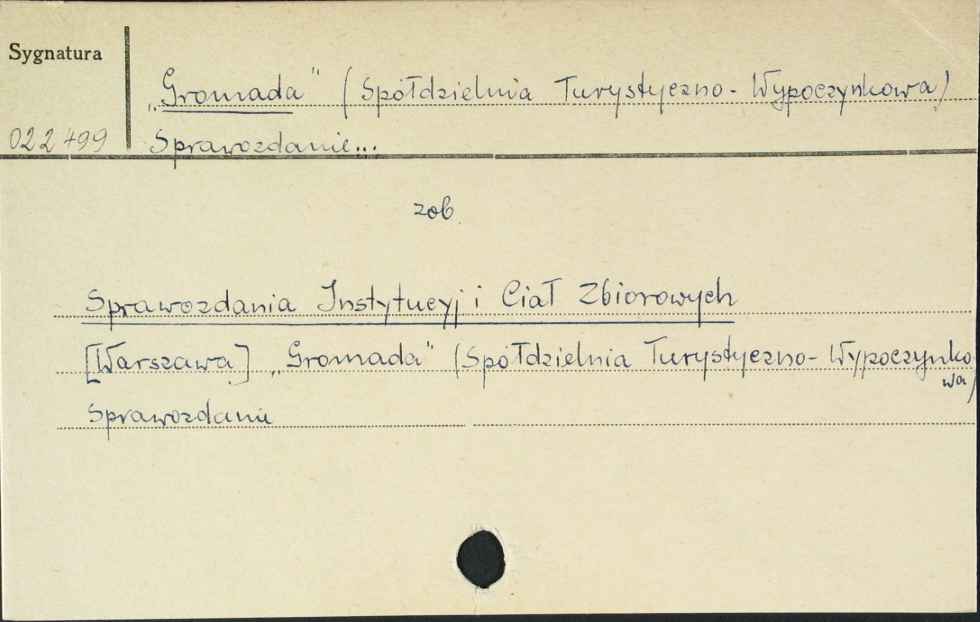 Sygnatura
„Gromada" (Spółdzielnia Turystyczno-Wypoczynkowa)
022499 Sprawozdanie...
zob.
Sprawozdania Instytucyj i Ciał Zbiorowych
[Warszawa] „Gromada" (Spółdzielnia Turystyczno-Wypoczynko
wa)
Sprawozdanie